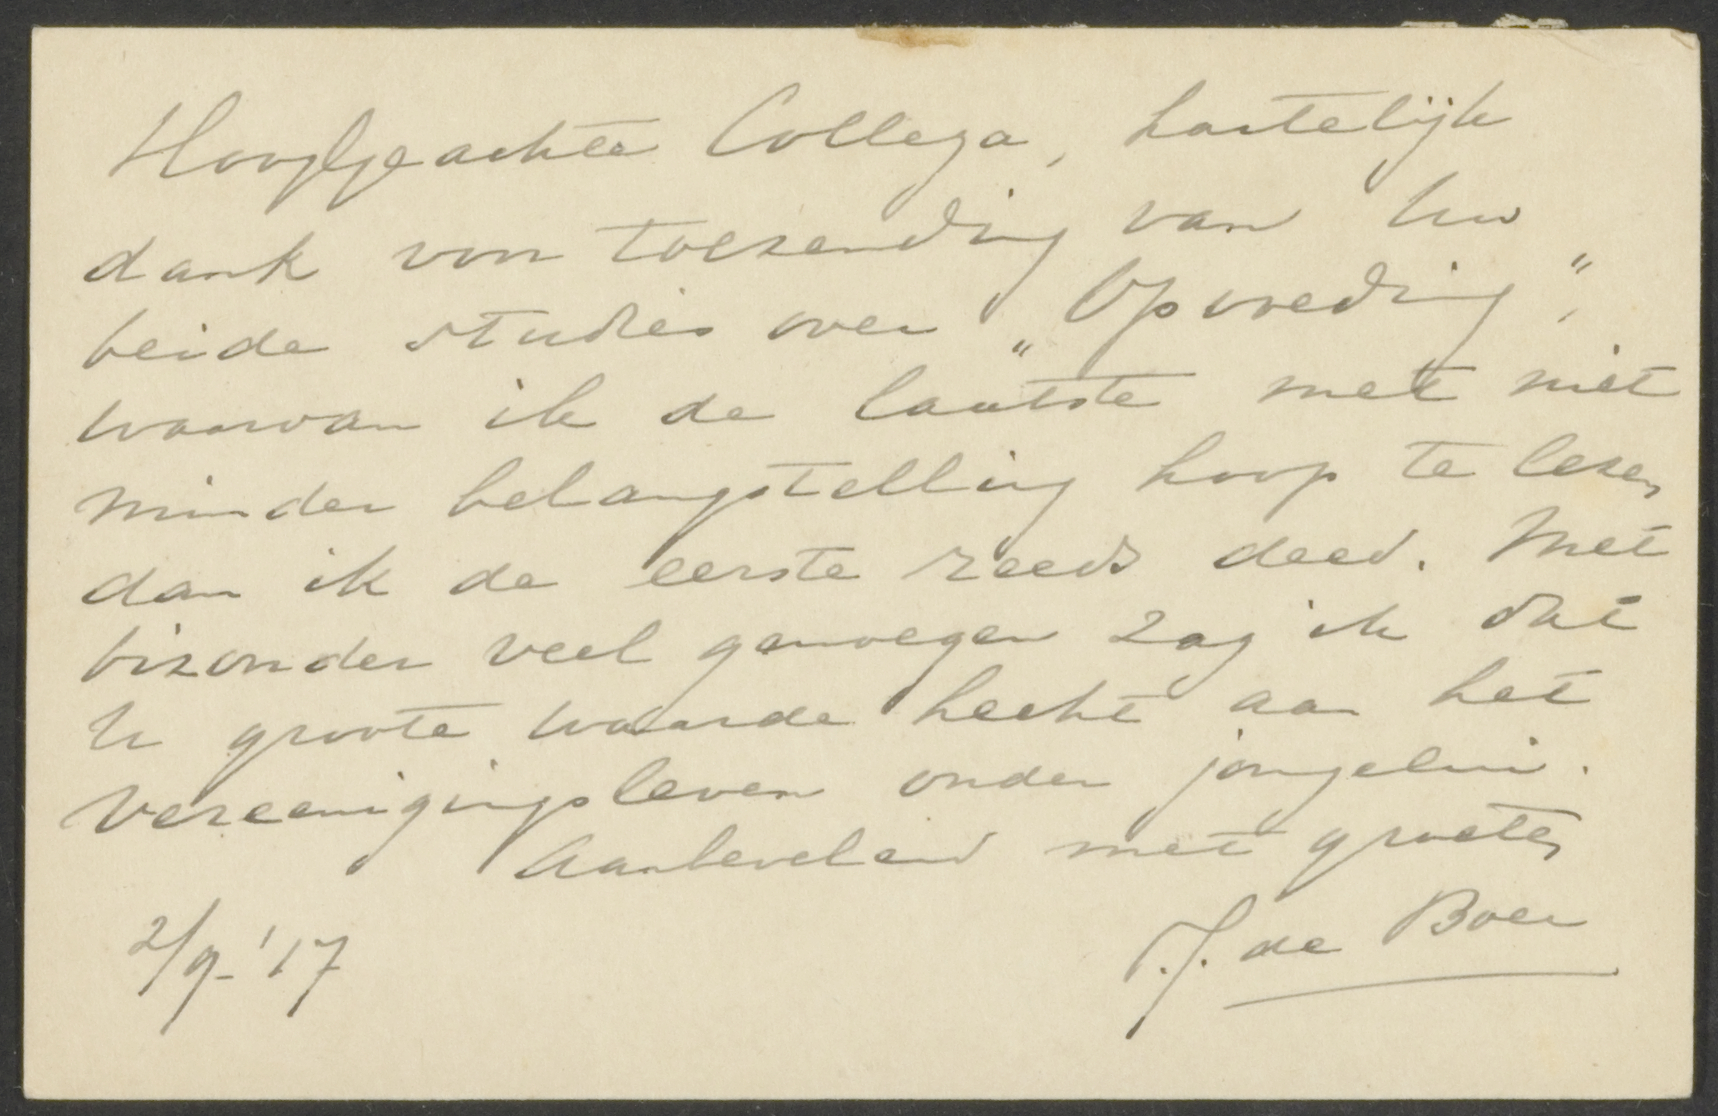 Hooggeachte Collega, hartelijk
dank voor toezending van Uw
beide studies over „Opvoeding",
waarvan ik de laatste met niet
minder belangstelling hoop te lezen
dan ik de eerste reeds deed. Met
bizonder veel genoegen zag ik dat
U groote waarde hecht aan het
Vereenigingsleven onder jongelui.
Aanbevelend met groeten
2/9-'17
T.J. de Boer